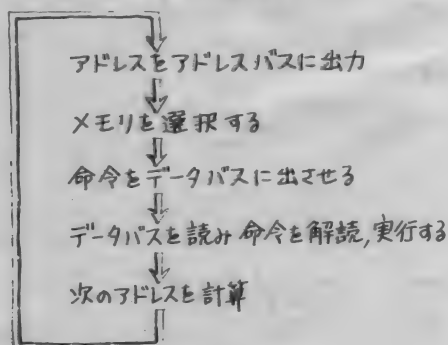 アドレスをアドレスバスに出力
メモリを選択する
命令をデータバスに出させる
データバスを読み命令を解読,実行する
次のアドレスを計算